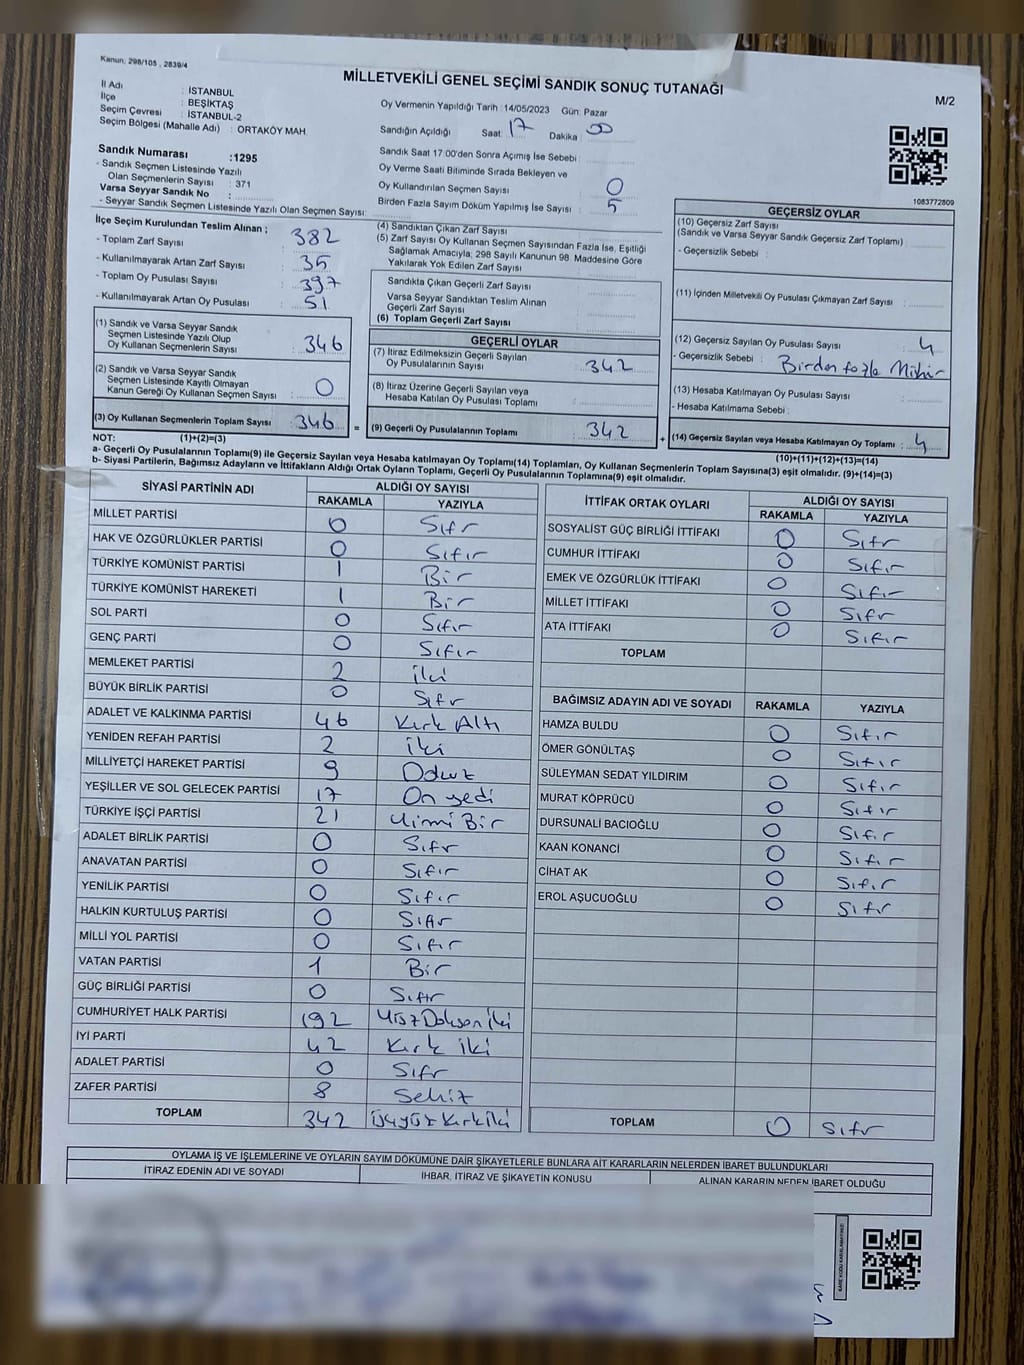 Kanun: 298/105 , 2839/4
MİLLETVEKİLİ GENEL SEÇİMİ SANDIK SONUÇ TUTANAĞI
M/2
İl Adı : İSTANBUL
İlçe : BEŞİKTAŞ
Seçim Çevresi : İSTANBUL-2
Seçim Bölgesi (Mahalle Adı) : ORTAKÖY MAH.
Oy Vermenin Yapıldığı Tarih : 14/05/2023 Gün: Pazar
Sandığın Açıldığı Saat 17 Dakika 00
Sandık Numarası :1295
- Sandık Seçmen Listesinde Yazılı
Olan Seçmenlerin Sayısı : 371
Varsa Seyyar Sandık No :
- Seyyar Sandık Seçmen Listesinde Yazılı Olan Seçmen Sayısı:
Sandık Saat 17:00'den Sonra Açımış İse Sebebi :
Oy Verme Saati Bitiminde Sırada Bekleyen ve
Oy Kullandırılan Seçmen Sayısı : 0
Birden Fazla Sayım Döküm Yapılmış İse Sayısı : 5
1083772809
İlçe Seçim Kurulundan Teslim Alınan ;
- Toplam Zarf Sayısı : 382
- Kullanılmayarak Artan Zarf Sayısı : 35
- Toplam Oy Pusulası Sayısı : 397
- Kullanılmayarak Artan Oy Pusulası : 51
(1) Sandık ve Varsa Seyyar Sandık
Seçmen Listesinde Yazılı Olup
Oy Kullanan Seçmenlerin Sayısı : 346
(2) Sandık ve Varsa Seyyar Sandık
Seçmen Listesinde Kayıtlı Olmayan
Kanun Gereği Oy Kullanan Seçmen Sayısı : 0
(3) Oy Kullanan Seçmenlerin Toplam Sayısı : 346 =
(4) Sandıktan Çıkan Zarf Sayısı :
(5) Zarf Sayısı Oy Kullanan Seçmen Sayısından Fazla İse, Eşitliği
Sağlamak Amacıyla; 298 Sayılı Kanunun 98. Maddesine Göre
Yakılarak Yok Edilen Zarf Sayısı :
Sandıkta Çıkan Geçerli Zarf Sayısı :
Varsa Seyyar Sandıktan Teslim Alınan
Geçerli Zarf Sayısı :
(6) Toplam Geçerli Zarf Sayısı :
GEÇERLİ OYLAR
(7) İtiraz Edilmeksizin Geçerli Sayılan
Oy Pusulalarının Sayısı : 342
(8) İtiraz Üzerine Geçerli Sayılan veya
Hesaba Katılan Oy Pusulası Toplamı :
(9) Geçerli Oy Pusulalarının Toplamı : 342 +
GEÇERSİZ OYLAR
(10) Geçersiz Zarf Sayısı
(Sandık ve Varsa Seyyar Sandık Geçersiz Zarf Toplamı) :
- Geçersizlik Sebebi :
(11) İçinden Milletvekili Oy Pusulası Çıkmayan Zarf Sayısı :
(12) Geçersiz Sayılan Oy Pusulası Sayısı : 4
- Geçersizlik Sebebi : Birden fazla Mühür
(13) Hesaba Katılmayan Oy Pusulası Sayısı :
- Hesaba Katılmama Sebebi :
(14) Geçersiz Sayılan veya Hesaba Katılmayan Oy Toplamı : 4
NOT: (1)+(2)=(3)
(10)+(11)+(12)+(13)=(14)
a- Geçerli Oy Pusulalarının Toplamı(9) ile Geçersiz Sayılan veya Hesaba katılmayan Oy Toplamı(14) Toplamları, Oy Kullanan Seçmenlerin Toplam Sayısına(3) eşit olmalıdır. (9)+(14)=(3)
b- Siyasi Partilerin, Bağımsız Adayların ve İttifakların Aldığı Ortak Oyların Toplamı, Geçerli Oy Pusulalarının Toplamına(9) eşit olmalıdır.
SİYASİ PARTİNİN ADI ALDIĞI OY SAYISI
RAKAMLA YAZIYLA
MİLLET PARTİSİ 0 Sıfır
HAK VE ÖZGÜRLÜKLER PARTİSİ 0 Sıfır
TÜRKİYE KOMÜNİST PARTİSİ 1 Bir
TÜRKİYE KOMÜNİST HAREKETİ 1 Bir
SOL PARTİ 0 Sıfır
GENÇ PARTİ 0 Sıfır
MEMLEKET PARTİSİ 2 iki
BÜYÜK BİRLİK PARTİSİ 0 Sıfır
ADALET VE KALKINMA PARTİSİ 46 Kırk Altı
YENİDEN REFAH PARTİSİ 2 iki
MİLLİYETÇİ HAREKET PARTİSİ 9 Dokuz
YEŞİLLER VE SOL GELECEK PARTİSİ 17 On yedi
TÜRKİYE İŞÇİ PARTİSİ 21 Yirmi Bir
ADALET BİRLİK PARTİSİ 0 Sıfır
ANAVATAN PARTİSİ 0 Sıfır
YENİLİK PARTİSİ 0 Sıfır
HALKIN KURTULUŞ PARTİSİ 0 Sıfır
MİLLİ YOL PARTİSİ 0 Sıfır
VATAN PARTİSİ 1 Bir
GÜÇ BİRLİĞİ PARTİSİ 0 Sıfır
CUMHURİYET HALK PARTİSİ 192 Yüz Doksan iki
İYİ PARTİ 42 Kırk iki
ADALET PARTİSİ 0 Sıfır
ZAFER PARTİSİ 8 Sekiz
TOPLAM 342 üçyüz kırk iki
İTTİFAK ORTAK OYLARI ALDIĞI OY SAYISI
RAKAMLA YAZIYLA
SOSYALİST GÜÇ BİRLİĞİ İTTİFAKI 0 Sıfır
CUMHUR İTTİFAKI 0 Sıfır
EMEK VE ÖZGÜRLÜK İTTİFAKI 0 Sıfır
MİLLET İTTİFAKI 0 Sıfır
ATA İTTİFAKI 0 Sıfır
TOPLAM
BAĞIMSIZ ADAYIN ADI VE SOYADI RAKAMLA YAZIYLA
HAMZA BULDU 0 Sıfır
ÖMER GÖNÜLTAŞ 0 Sıfır
SÜLEYMAN SEDAT YILDIRIM 0 Sıfır
MURAT KÖPRÜCÜ 0 Sıfır
DURSUNALİ BACIOĞLU 0 Sıfır
KAAN KONANCİ 0 Sıfır
CİHAT AK 0 Sıfır
EROL AŞUCUOĞLU 0 Sıfır
TOPLAM 0 Sıfır
OYLAMA İŞ VE İŞLEMLERİNE VE OYLARIN SAYIM DÖKÜMÜNE DAİR ŞİKAYETLERLE BUNLARA AİT KARARLARIN NELERDEN İBARET BULUNDUKLARI
İTİRAZ EDENİN ADI VE SOYADI İHBAR, İTİRAZ VE ŞİKAYETİN KONUSU ALINAN KARARIN NEDEN İBARET OLDUĞU